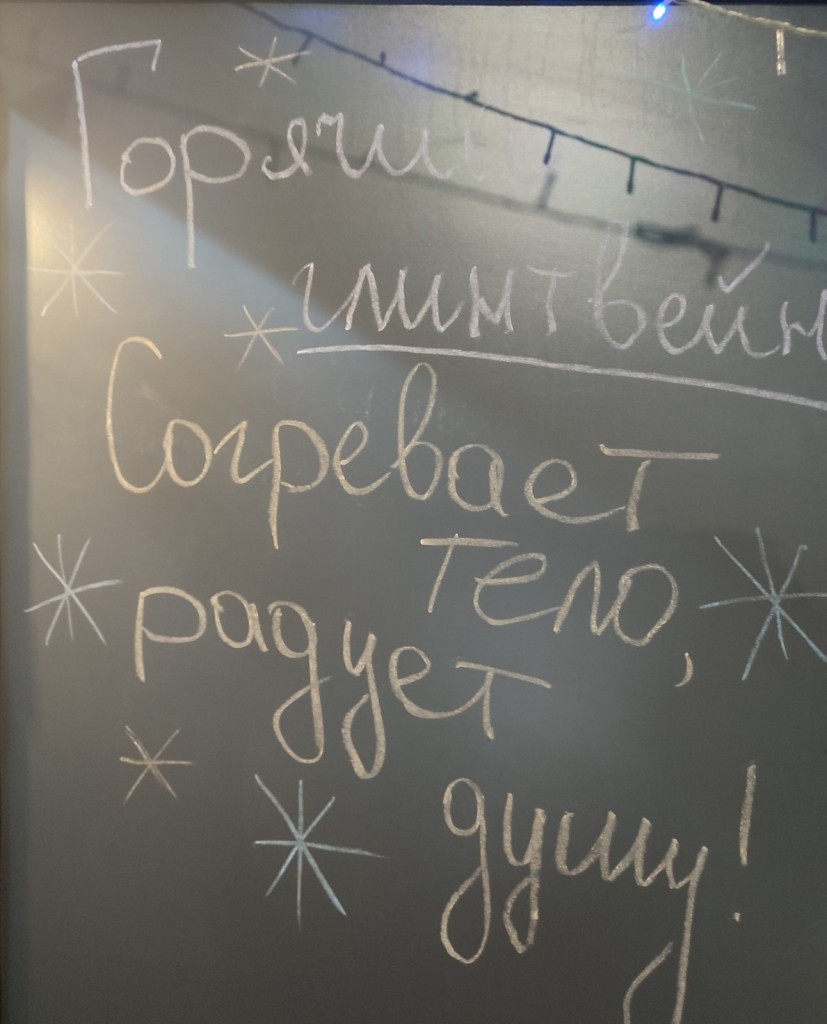 Горячий
глинтвейн
Согревает
тело,
радует
душу!